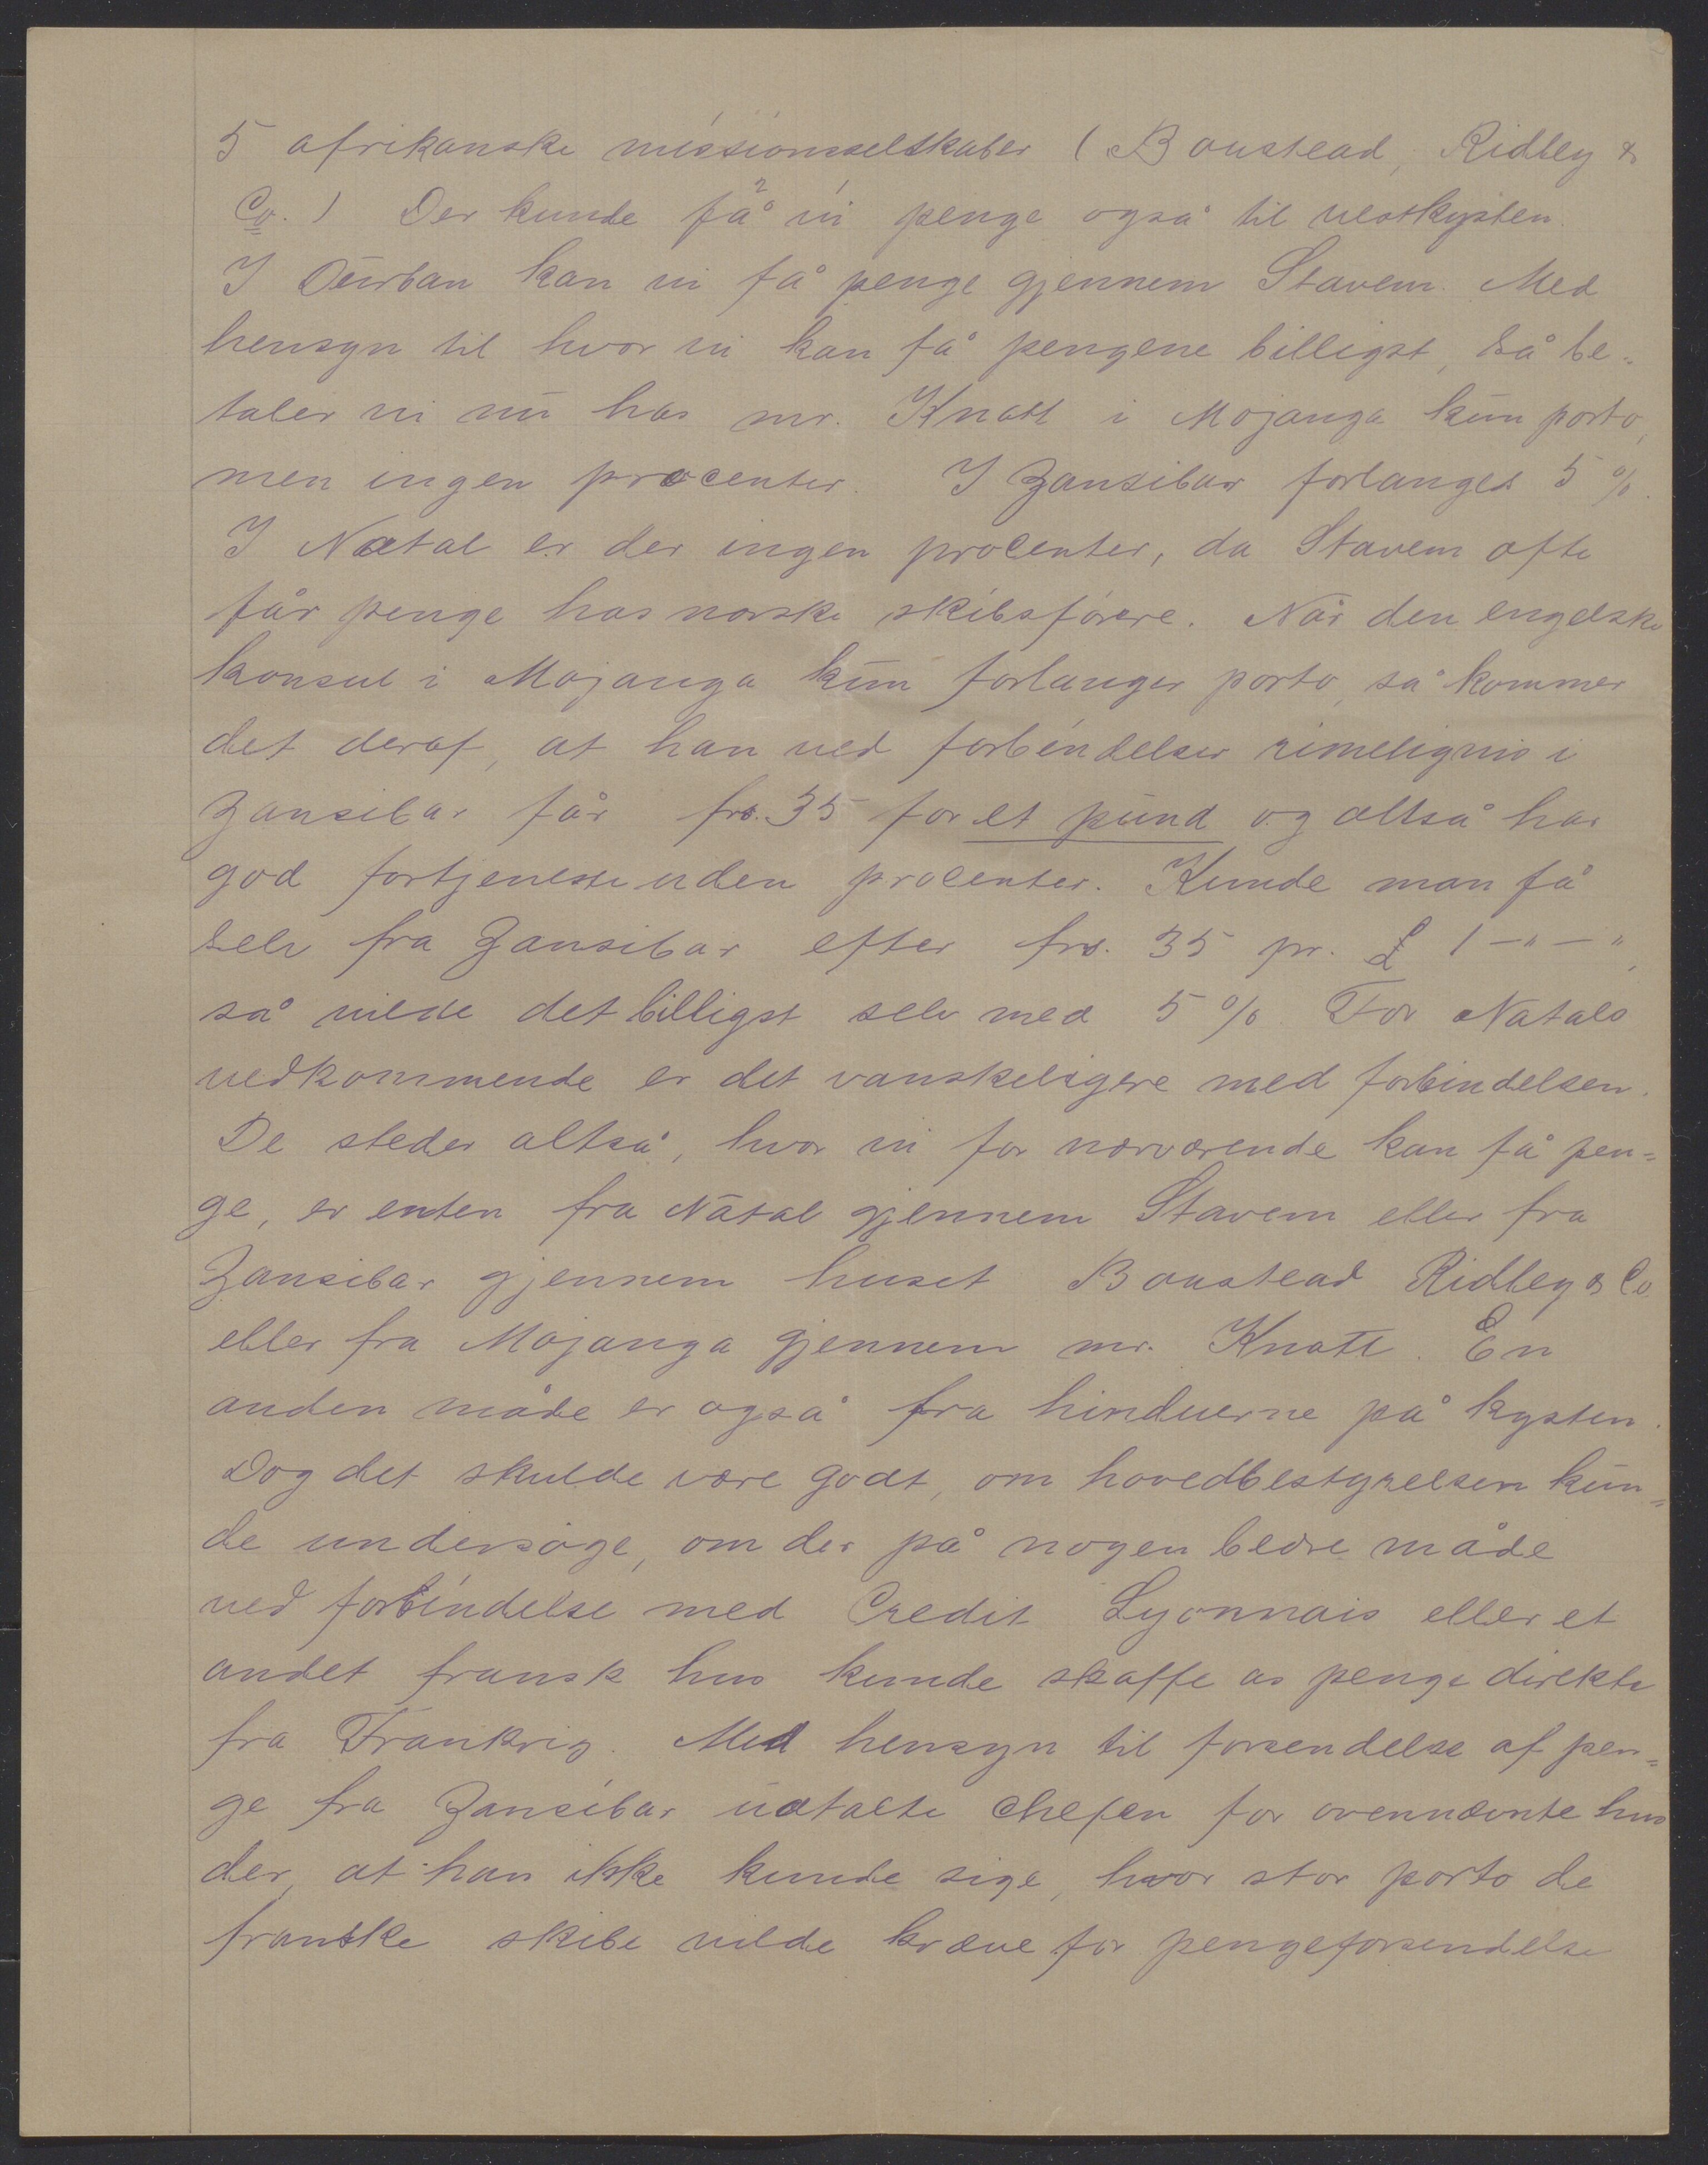 5 afrikanske missionsselskaber (Boustead, Ridley &
Co.) Der kunde få vi penge også til vestkysten.
I Durban kan vi få penge gjennem Stavem. Med
hensyn til hvor vi kan få pengene billigst, så be-
taler vi nu hos mr. Knott i Mojanga kun porto,
men ingen procenter. I Zansibar forlanges 5%.
I Natal er der ingen procenter, da Stavem ofte
får penge hos norske skibsförere. Når den engelske
konsul i Mojanga kun forlanger porto, så kommer
det deraf, at han ved forbindelser rimeligvis i
Zansibar får frs. 35 for et pund og altså har
god fortjeneste uden procenter. Kunde man få
selv fra Zansibar efter frs. 35 pr. £ 1 – " – ",
så vilde det billigst selv med 5%. For Natals
vedkommende er det vanskeligere med forbindelsen.
De steder altså, hvor vi for nærværende kan få pen-
ge, er enten fra Natal gjennem Stavem eller fra
Zansibar gjennem huset Boustead Ridley & Co
eller fra Mojanga gjennem mr. Knott. En
anden måde er også fra hinduerne på kysten.
Dog det skulde være godt, om hovedbestyrelsen kun-
de undersöge, om der på nogen bedre måde
ved forbindelse med Credit Lyonnais eller et
andet fransk hus kunde skaffe os penge direkte
fra Frankrig. Med hensyn til forsendelse af pen-
ge fra Zansibar udtalte chefen for ovennævnte hus
der, at han ikke kunde sige, hvor stor porto de
franske skibe vilde kræve for pengeforsendelse